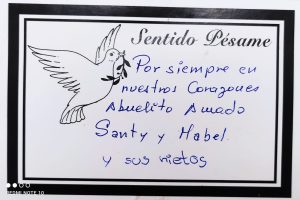 Sentido Pésame
Por siempre en
nuestros Corazones
Abuelito Amado
Santy y Mabel.
y sus nietos
REDMI NOTE 10